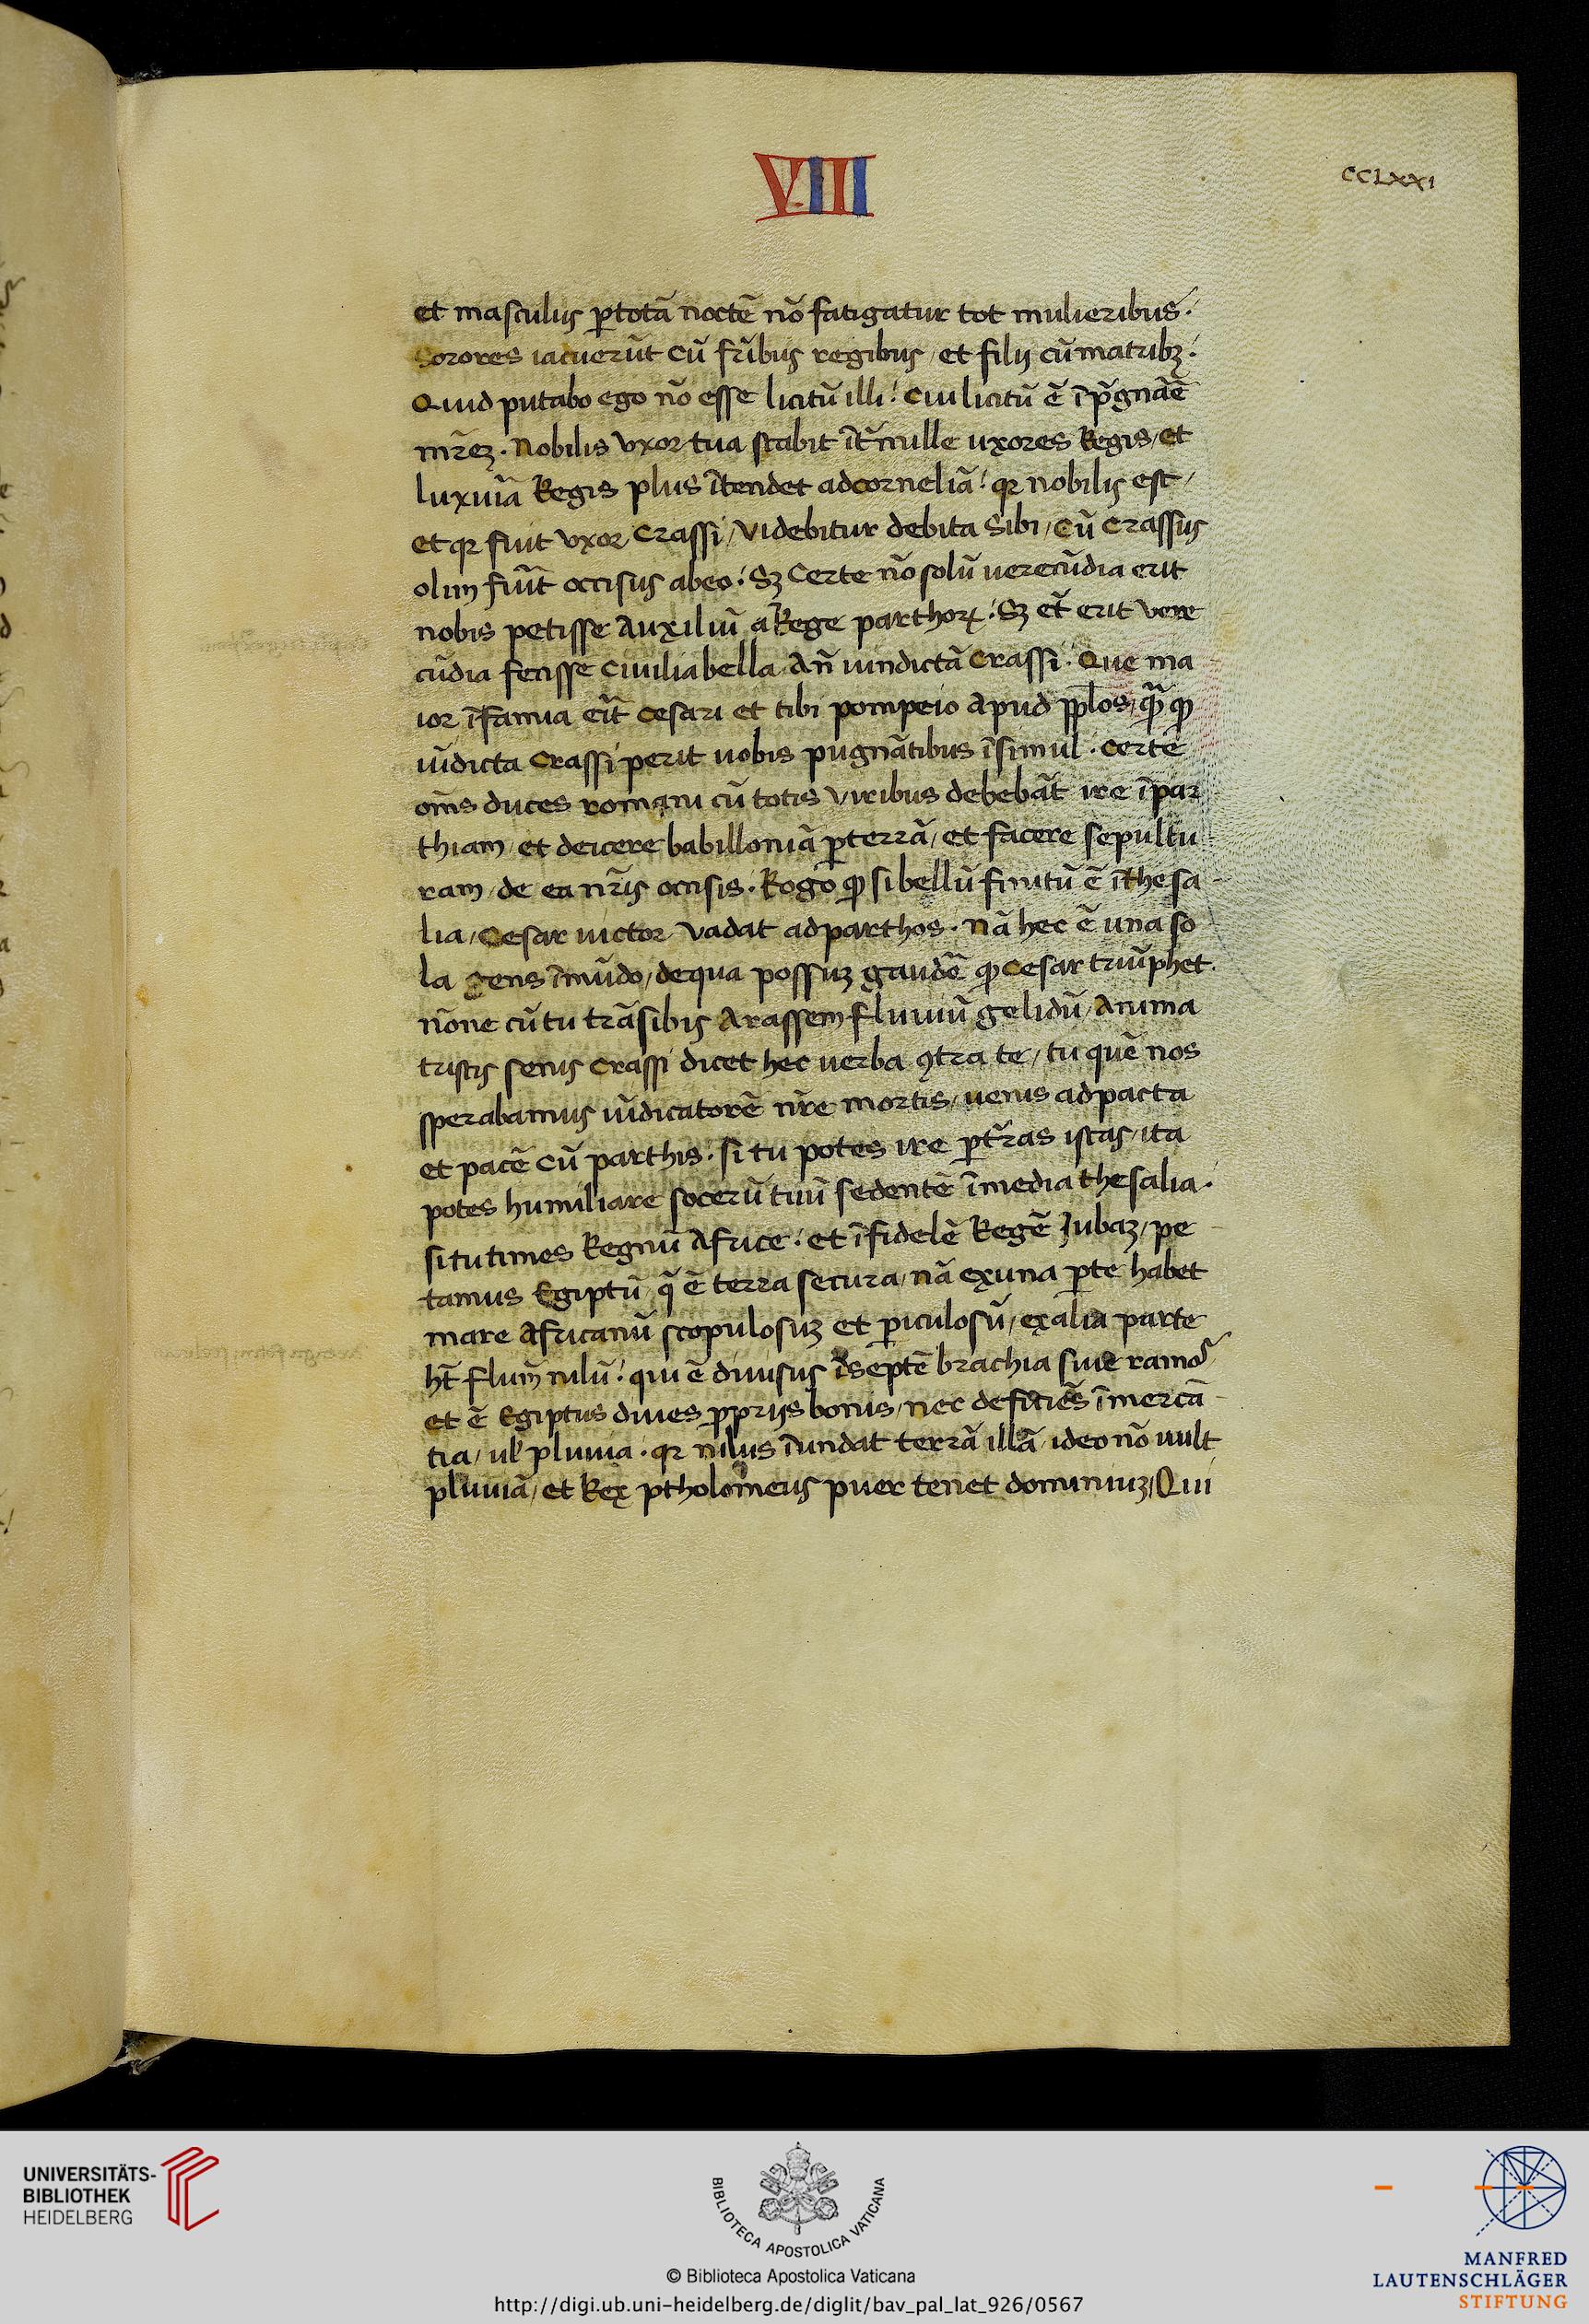 VIII
CCLXXI
et masculus ꝑ totā noctē nō fatigatur tot mulieribus.
Sorores iacuerūt cū fr̄ibus regibus / et filij cū matribꝫ.
Quid putabo ego nō esse licitū illi! Cui licitū ē ī p̄gnāē
mr̄eꝫ. Nobilis vxor tua stabit īt̄ mille uxores Regis / et
luxuiā Regis plus ītendet ad corneliā! qr nobilis est /
et qr fuit vxor Crassi / videbitur debita Sibi / Cū Crassus
olim fuīt occisus ab eo. Sꝫ Certe nō solū uerecūdia erit
nobis petisse Auxiliū a Rege parthoꝝ. Sꝫ et̄ erit vere
cūdia fecisse Ciuilia bella An̄ uindictā Crassi. Que ma
ior īfamia erīt Cesari et tibi pompeio Apud pp̄los / quā̄ ꝙ
uīdicta Crassi perit uobis pugnātibus īsimul. Certe
om̄s duces romani cū totis viribus debebāt ire ī par
thiam / et deicere babilloniā ꝑ terrā / et facere sepultu
ram / de ea nr̄is occisis. Rogo ꝙ si bellū finitū ē ī Thesa
lia / Cesar uictor vadat ad parthos. Nā hec ē una so
la gens ī mūdo / de qua possuꝫ gaudē̄ ꝙ Cesar triūphet.
nōne cū tu trāsibis Arassem fluuiū gelidū / Anima
tristis senis Crassi dicet hec uerba ꝯtra te / tu quē nos
sperabamus uīdicatorē nr̄e mortis / uenis ad pacta
et pacē cū parthis. si tu potes ire ꝑ tr̄as istas / ita
potes humiliare socerū tuū sedentē ī media thesalia.
si tu times Regnū Africe! et īfidelē Regē Jubaꝫ / pe
tamus Egiptū / q̄ ē terra secura / nā ex una ꝑte habet
mare Africanū scopulosuꝫ et ꝑiculosū / ex alia parte
ht̄ flum̄ nilū! qui ē diuisus ī septē brachia siue ramos
et ē Egiptus diues ꝓprijs bonis / nec deficiēs ī mercā
tia / ul̓ pluuia. qr nilus īundat terrā illā / ideo nō uult
pluuiā / et Rex ptholomeus puer tenet dominiuꝫ / Qui
UNIVERSITÄTS-
BIBLIOTHEK
HEIDELBERG
BIBLIOTECA APOSTOLICA VATICANA
© Biblioteca Apostolica Vaticana
http://digi.ub.uni-heidelberg.de/diglit/bav_pal_lat_926/0567
MANFRED
LAUTENSCHLÄGER
STIFTUNG